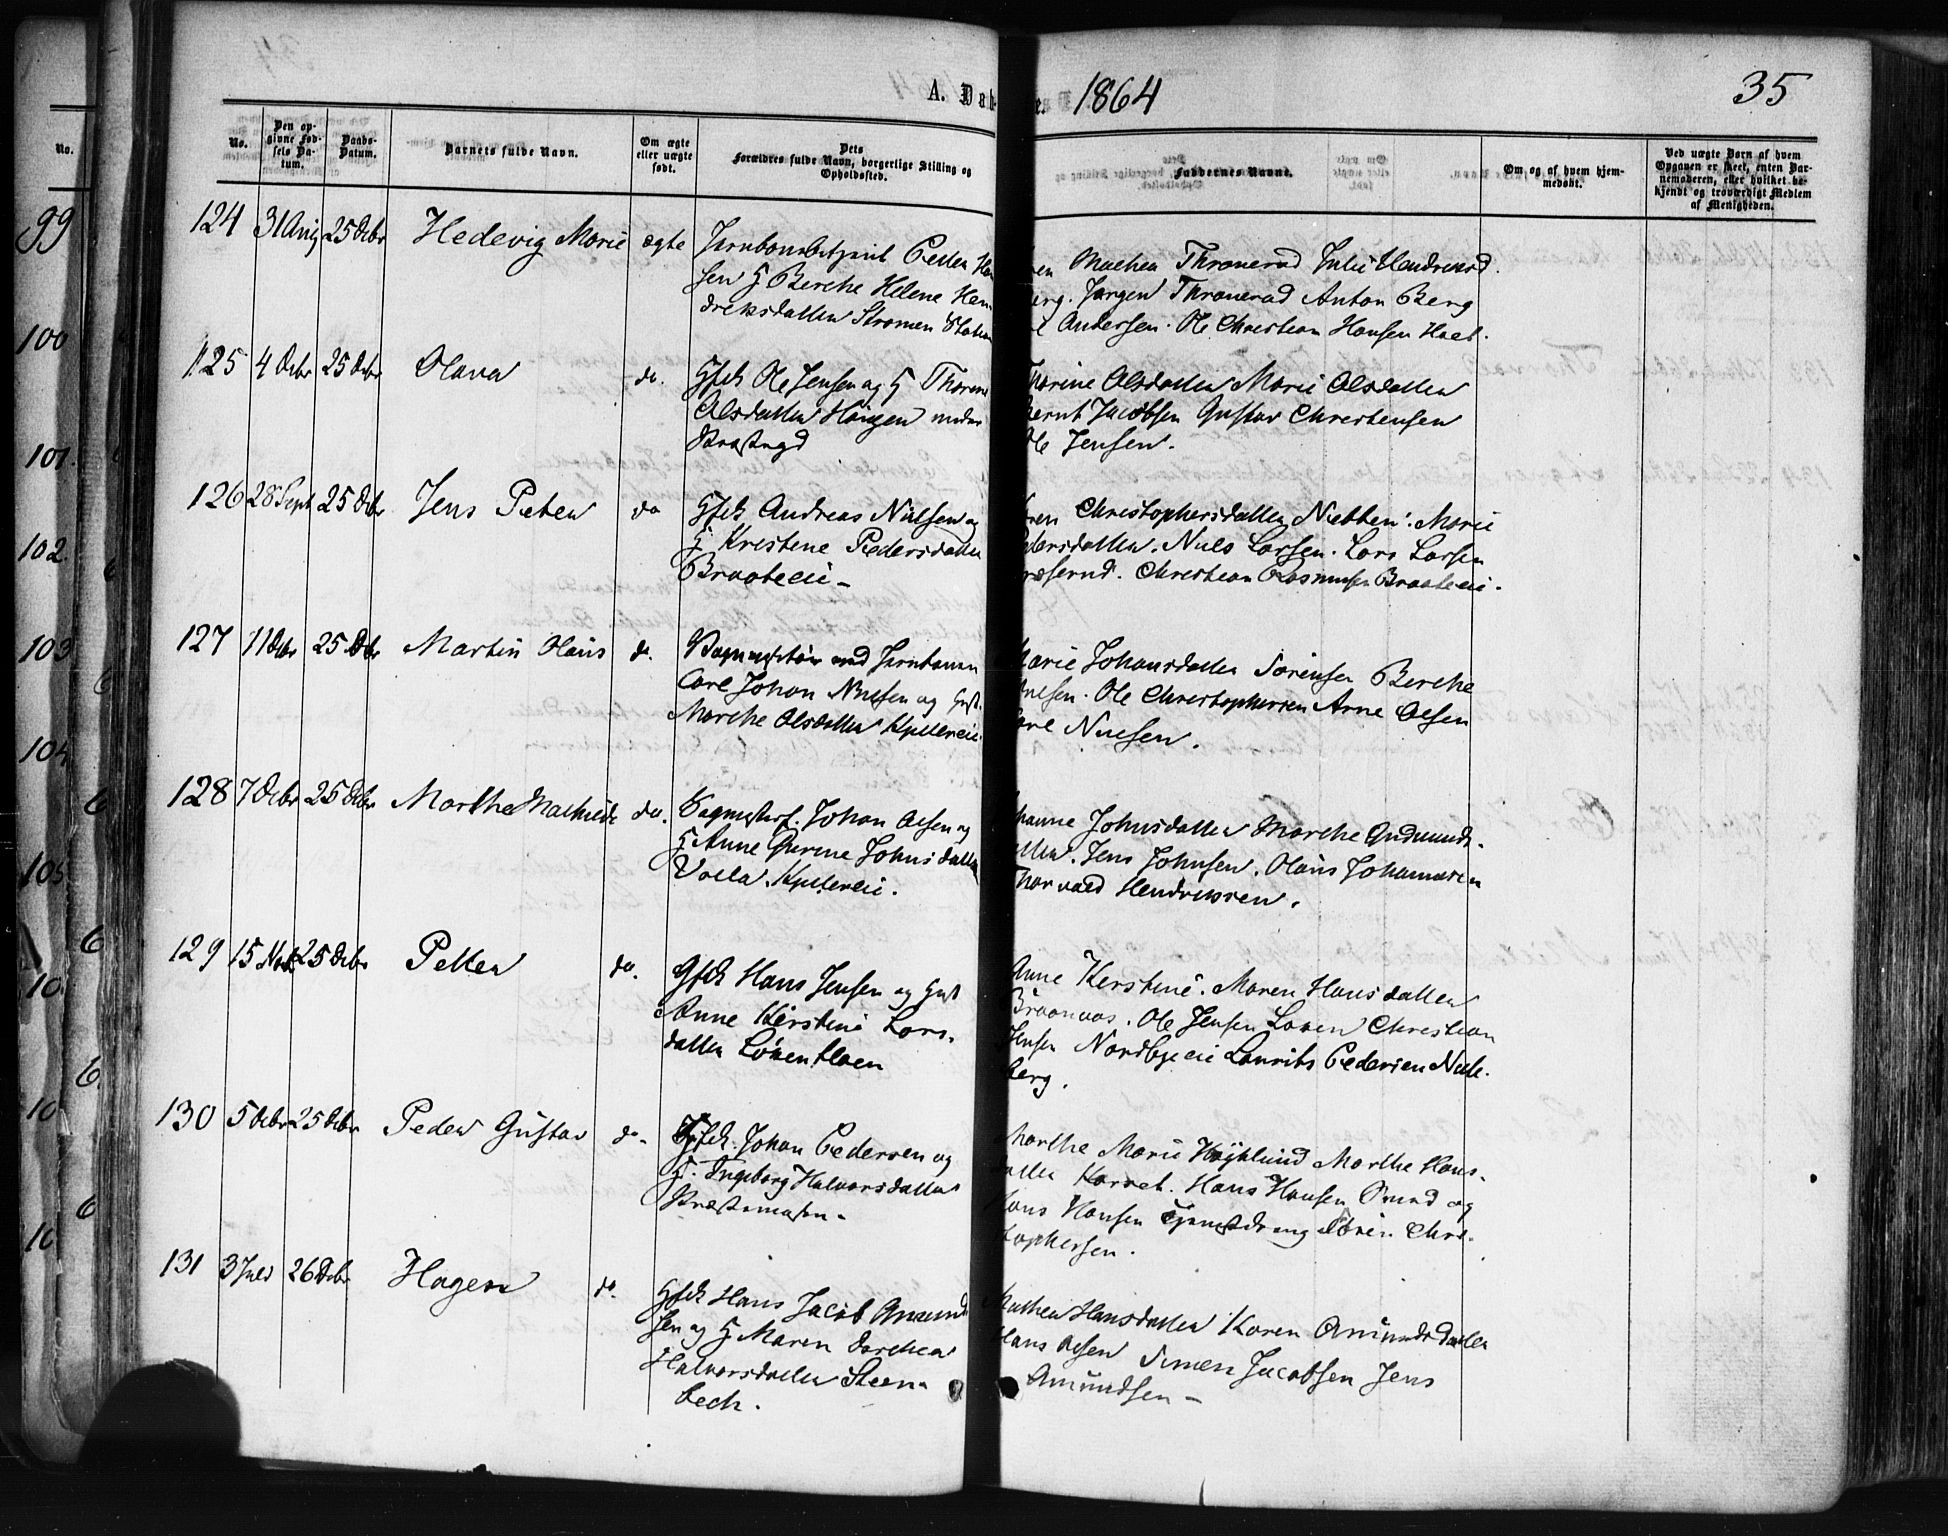 1864
35
A. Dab
e.
No.
No.
Den op-
givne Fød-
sels Da-
tum.
Daabs-
Datum.
Barnets fulde Navn.
Om ægte
eller uægte
født.
Dets
Forældres fulde Navn, borgerlige Stilling og
Opholdssted.
Faddernes Navne.
Om og af hvem hjem-
medøbt.
Ved uægte Børn af hvem
Opgaven er skeet, enten Bar-
nemoderen, eller hvilket be-
kjendt og troværdigt Medlem
af Menigheden.
99
100
101.
102.
103
104
105
10
10
10
124 31 Aug 25 Dcbr Hedevig Marie ægte Jernbanebetjent Peder Han
sen & H Berthe Helene Hen
driksdatter Strømen Station
Mathea Thronerud Julie Hendriksd.
erg. Jørgen Thronerud Anton Berg
Andersen. Ole Christian Hansen Hoel.
125 4 Dcbr 25 Dcbr Olava do. Gfst Ole Jensen og H Thorine
Olsdatter Haugen under
Thorine Olsdatter Marie Olsdatter
Bernt Jacobsen Gustav Christensen
Ole Jensen.
126 28 Sept 25 Dcbr Jens Peter do Gfst Andreas Nilsen og
H Kristine Pedersdatter
Braateeie
Christophersdatter Nebben. Marie
edersdatter. Niels Larsen. Lars Larsen
Christian Rasmussen Braateeie.
127 11 Dcbr 25 Dcbr Martin Olaus do. Vognmester ved Jernbanen
Carl Johan Nilsen og Hust.
Marthe Olsdatter
Marie Johansdatter Sørensen Berthe
Nilsen. Ole Christophersen Arne Olsen
Carl Nielsen.
128 7 Dcbr 25 Dcbr Marthe Mathilde do. Johan Olsen og
H Anne Gurine Johnsdatter
Volla
hanne Johnsdatter Marthe Gudmunds-
atter. Jens Johnsen. Olaus Johannesen
Thorvald Hendriksen.
129 15 Nov. 25 Dcbr Petter do. Gfst Hans Jensen og Hust
Anne Kirstine Lars-
datter
Anne Kerstine. Maren Hansdatter
Braanaas. Ole Jensen Christian
Jensen Nordbyeeie Laurits Pedersen
berg.
130 5 Dcbr 25 Dcbr Peder Gustav do. Gfst. Johan Pedersen og
H. Ingeborg Halvorsdatter
Præstemosen.
Marthe Marie Marthe Hans-
datter Hans Hansen og
Hans Hansen Tjenestdreng Sören Chri-
stophersen.
131 3 Juli 26 Dcbr Hagen do. Gfst Hans Jacob Amund
sen og H Maren Dorthea
Halvorsdatter Steen-
bech.
Mathea Hansdatter Karen Amundsdatter
Hans Olsen Simen Jacobsen Jens
Amundsen